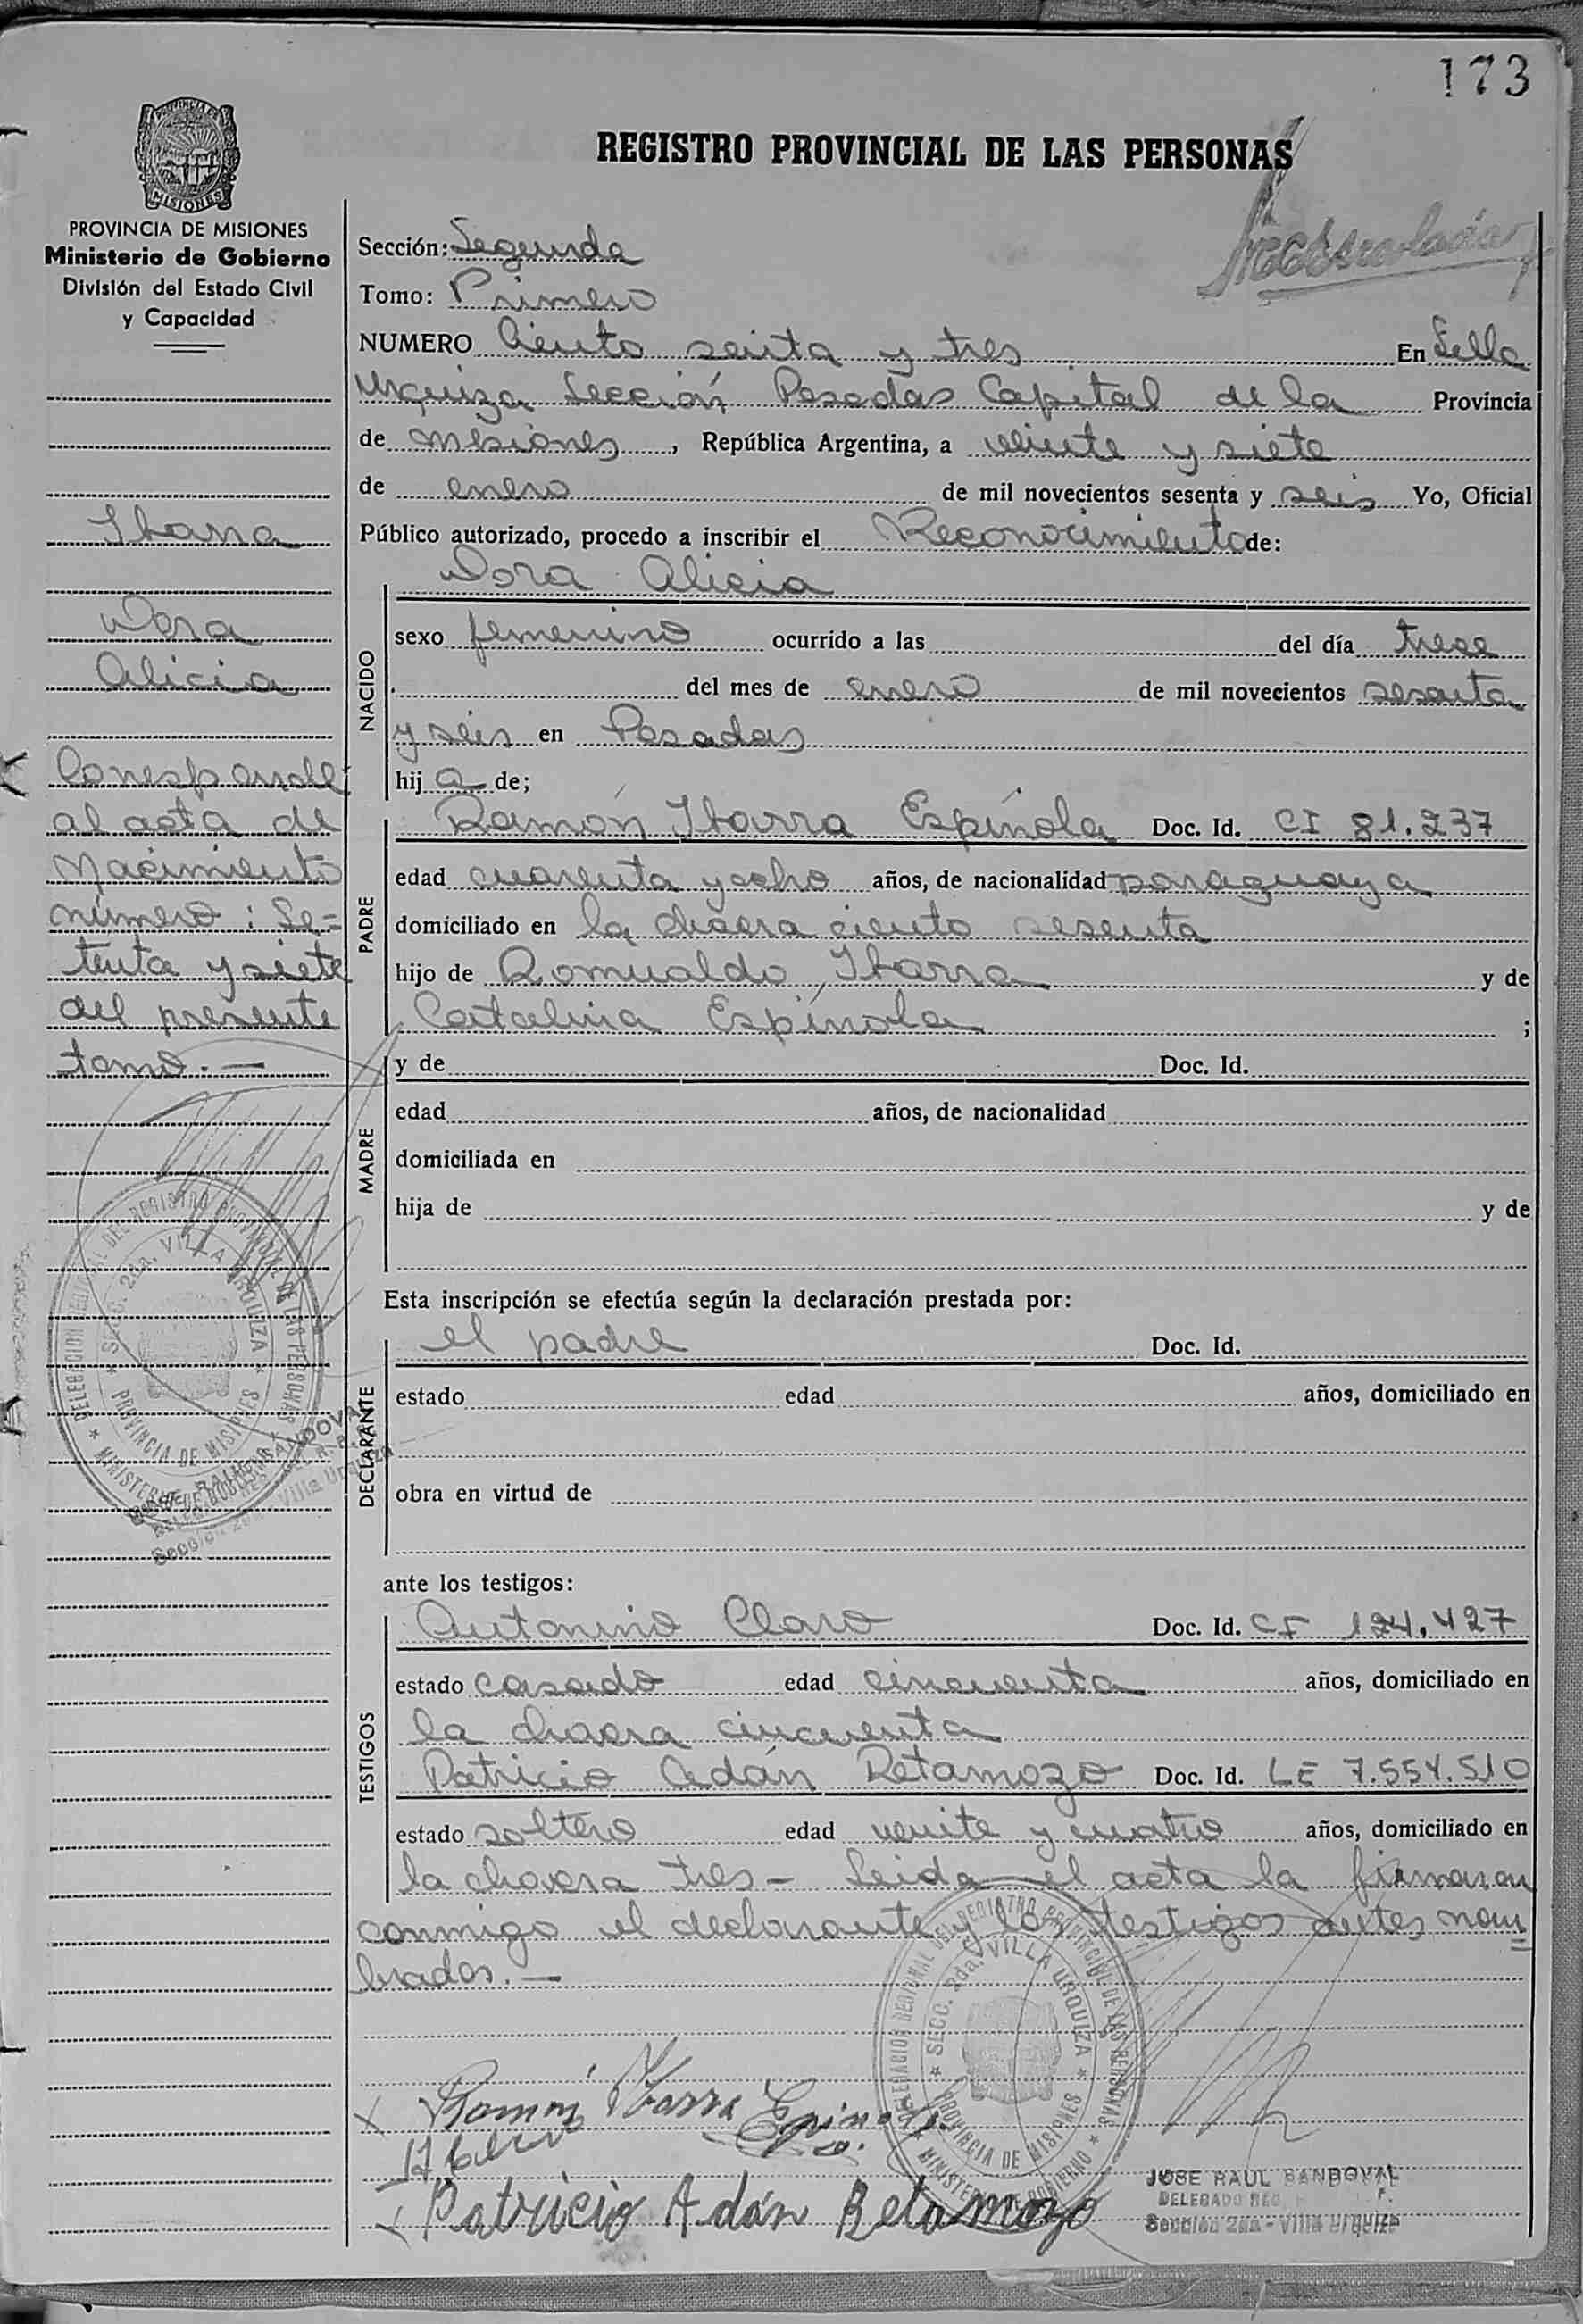 173
PROVINCIA DE MISIONES
REGISTRO PROVINCIAL DE LAS PERSONAS
PROVINCIA DE MISIONES
Ministerio de Gobierno
División del Estado Civil
y Capacidad
Ibarra
Dora
Alicia
Corresponde
al acta de
Nacimiento
número: Se=
tenta y siete
del presente
tomo. —
Sección: Segunda
Tomo: Primero
NUMERO Ciento setenta y tres En Villa
Urquiza Sección Posadas Capital de la Provincia
de Misiones, República Argentina, a veinte y siete
de enero de mil novecientos sesenta y seis Yo, Oficial
Público autorizado, procedo a inscribir el Reconocimiento de:
Dora Alicia
NACIDO
sexo femenino ocurrido a las del día trece
del mes de enero de mil novecientos sesenta
y seis en Posadas
hij a de;
PADRE
Ramón Ibarra Espínola Doc. Id. CI 81.237
edad cuarenta y ocho años, de nacionalidad paraguaya
domiciliado en la chacra ciento sesenta
hijo de Romualdo Ibarra y de
Catalina Espínola ;
MADRE
y de Doc. Id.
edad años, de nacionalidad
domiciliada en
hija de y de
Esta inscripción se efectúa según la declaración prestada por:
DECLARANTE
el padre Doc. Id.
estado edad años, domiciliado en
obra en virtud de
ante los testigos:
TESTIGOS
Antonino Claro Doc. Id. CI 124.427
estado casado edad cincuenta años, domiciliado en
la chacra cincuenta
Patricio Adán Retamozo Doc. Id. LE 7.554.510
estado soltero edad veinte y cuatro años, domiciliado en
la chacra tres - Leida el acta la firmaron
conmigo el declarante y los testigos antes nom
brados. —
DELEGACION REGIONAL DEL REGISTRO PROVINCIAL DE LAS PERSONAS
SECC. 2da. VILLA URQUIZA
PROVINCIA DE MISIONES
MINISTERIO DE GOBIERNO
DELEGACION REGIONAL DEL REGISTRO PROVINCIAL DE LAS PERSONAS
SECC. 2da. VILLA URQUIZA
PROVINCIA DE MISIONES
MINISTERIO DE GOBIERNO
Ramón Ibarra Espinola
Patricio Adán Retamozo
JOSE RAUL SANDOVAL
DELEGADO REG.
Sección 2da - Villa Urquiza